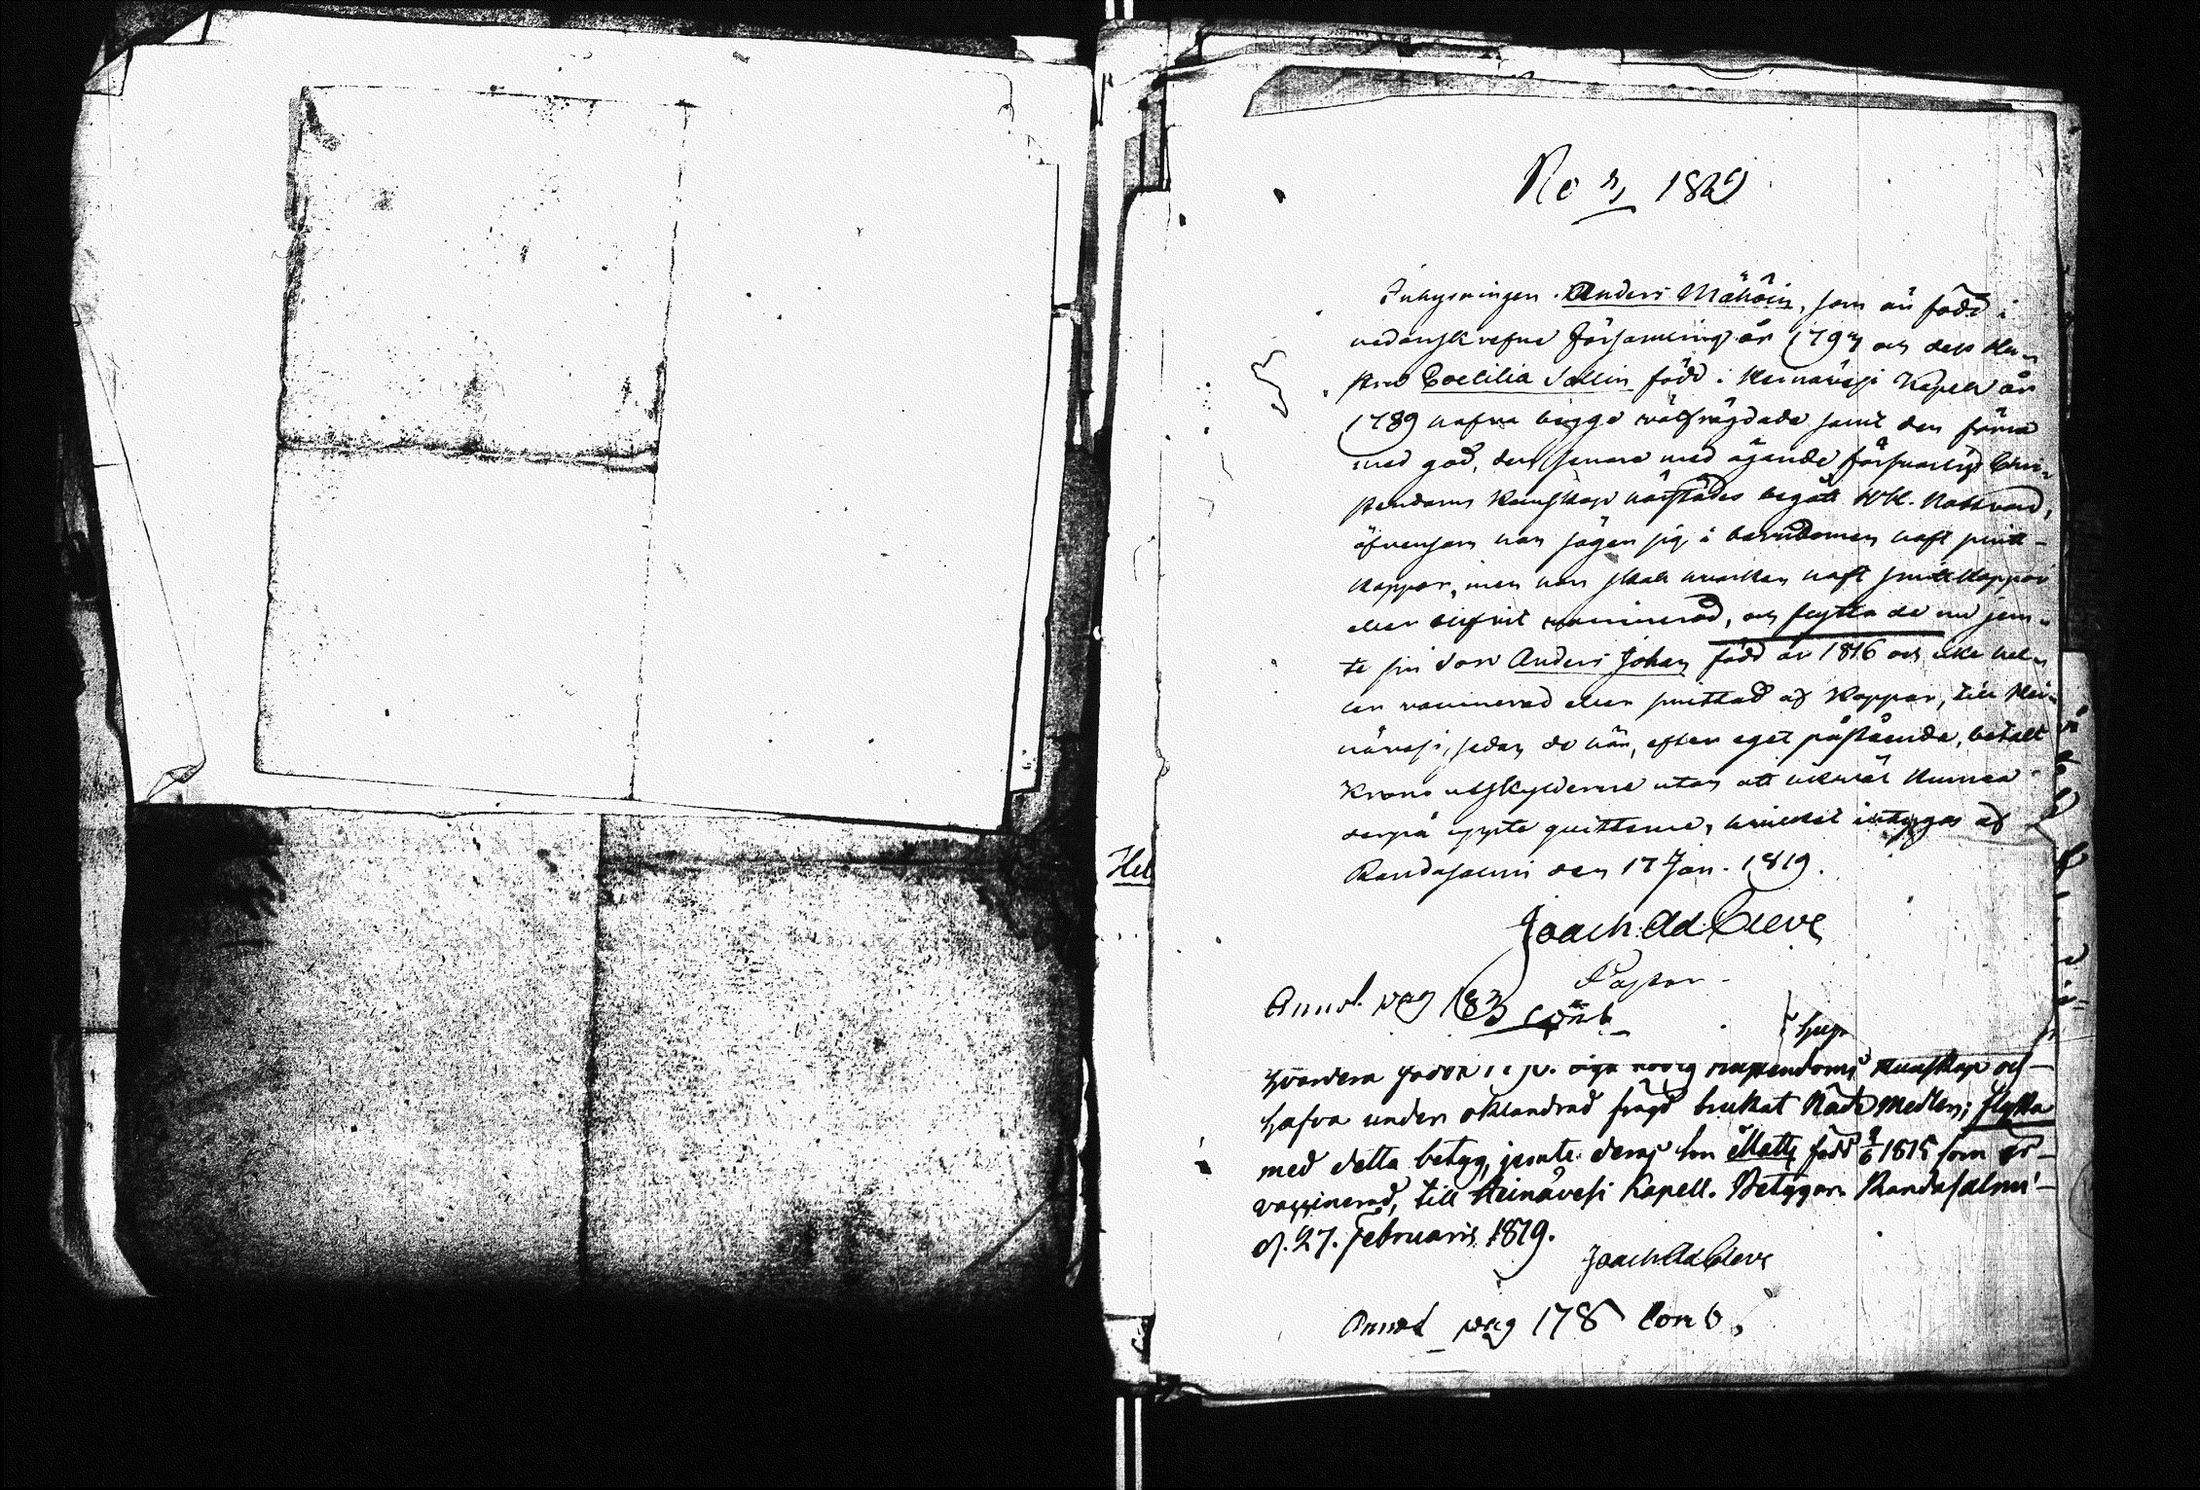 No 3, 1829
Inhysningen Anders Mähöin, som är född i
nedanskrefne Församling år 1797 och dess Hu-
stru Coelilia Sallin född i Heinävesi Kapell år
1789 hafva bägge välfrägdade samt den förra
med god, den senare med ägande försvarlig Chri-
stendoms Kunskap härstädes begått HH. Nattvard,
äfvensom han säger sig i barndomen haft smitt-
koppor, men hon skall hvarken haft smittkoppor
eller blifvit vaccinerad, och flytta de nu jem-
te sin Son Anders Johan född år 1816 och icke hel-
ler vaccinerad eller smittad af Koppor, till Hei-
nävesi, sedan de här, efter eget påstående, betalt
Krono utskylderne utan att likväl kunna
derpå uppte quittence, hvilket intygas af
Randasalmi den 17 Jan. 1819.
Joach: Ad: Cleve
Pastor
Annot pag 183 Comb
Hel
hvardera christendoms kunskap och
hafva under oklandrad frägd brukat Nådemedlen; flytta
med detta betyg, jemte deras son Matts född 9/6 1815 som är
vaccinerad, till Heinävesi Kapell. Betygar. Randasalmi
d. 27. Februarii 1819.
Joach: Ad: Cleve
Annot pag 178 Comb.